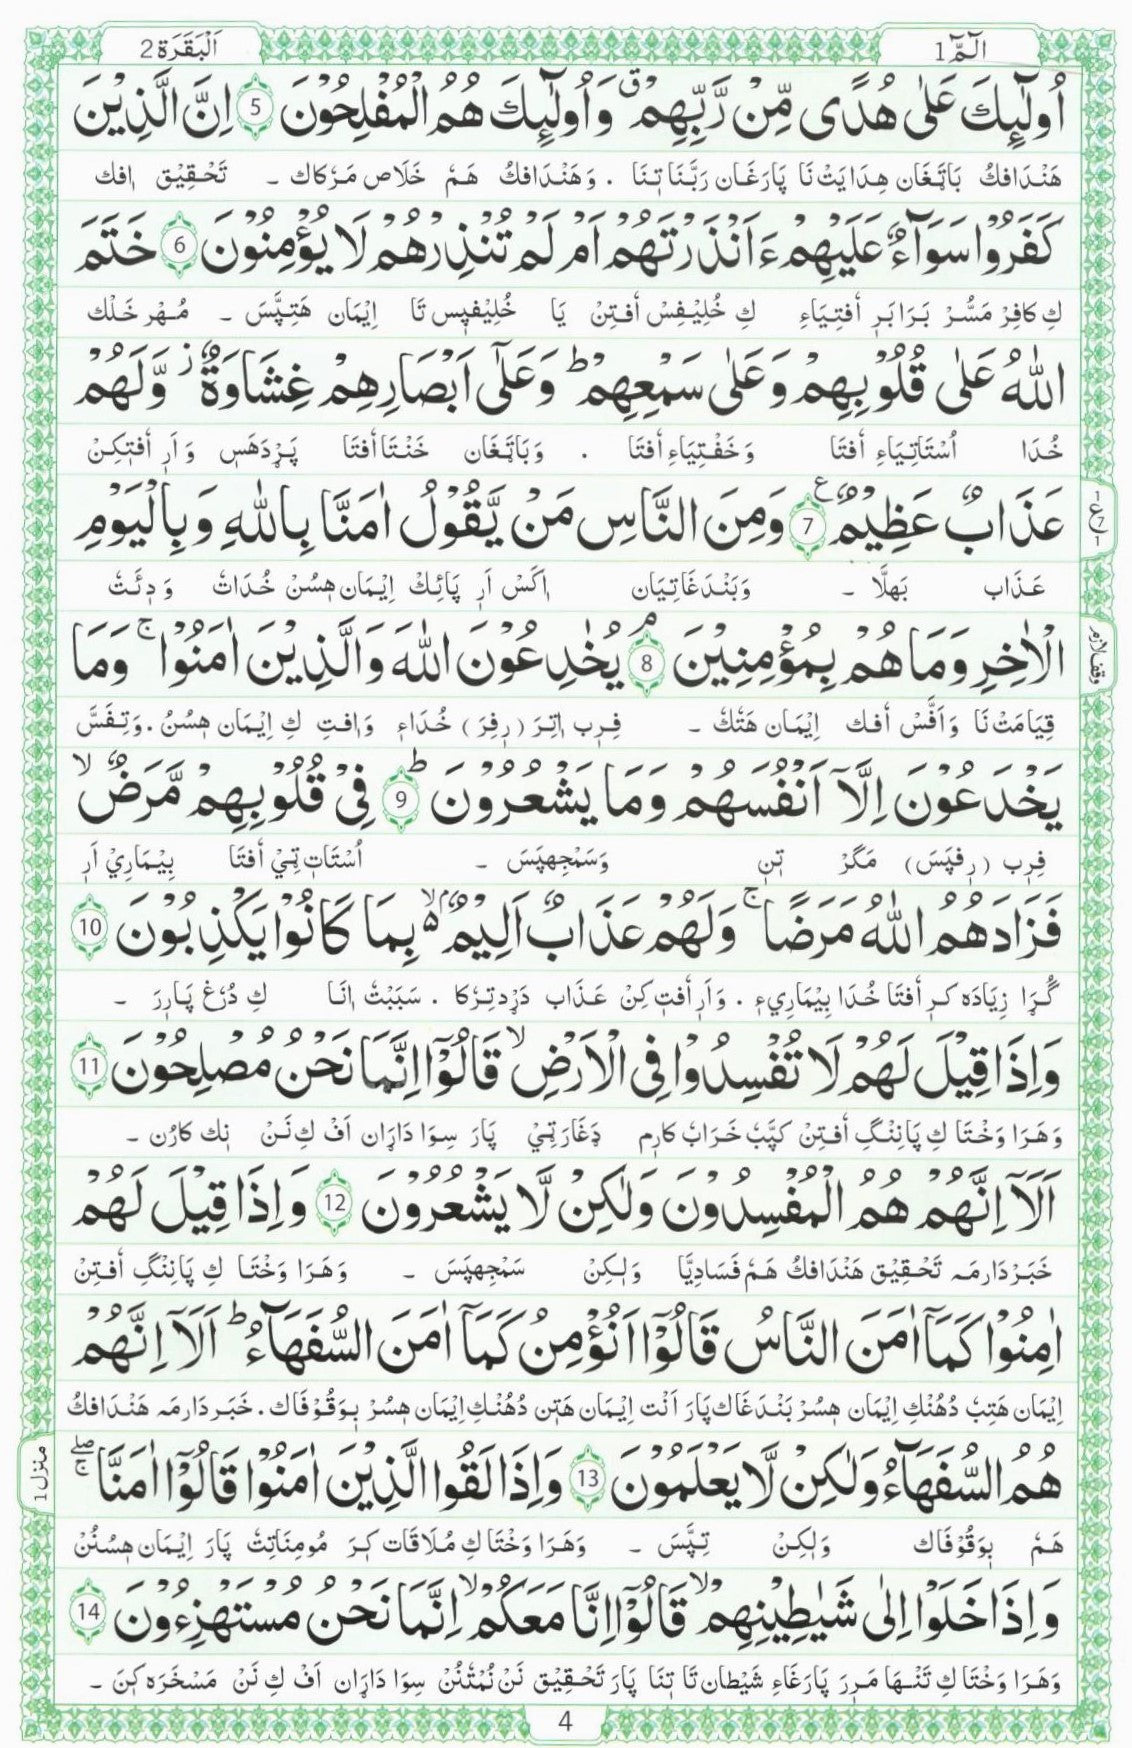 الٓمّٓ 1
اَلْبَقَرَة 2
اُولٰٓئِكَ عَلٰى هُدًى مِّنْ رَّبِّهِمْ ۗ وَاُولٰٓئِكَ هُمُ الْمُفْلِحُوْنَ 5 اِنَّ الَّذِيْنَ
هَنْدَافكْ بَاتِغَان هِدَايَتْ نَا پَارَغَان رَبَّنَا تٖنَا . وَهَنْدَافكْ هَمْ خَلَاص مَرٖكَاك ۔ تَحْقِيْق اٖفك
كَفَرُوْا سَوَآءٌ عَلَيْهِمْ ءَاَنْذَرْتَهُمْ اَمْ لَمْ تُنْذِرْهُمْ لَا يُؤْمِنُوْنَ 6 خَتَمَ
كِ كَافِرْ مَسُّرْ بَرَابَرٖ أُفتِيَاءِ كِ خُلِيْفِسْ أُفتِنْ يَا خُلِيْفٖيسْ تَا اِيْمَان هَتِپَّسَ ۔ مُهْر خَلْك
اللّٰهُ عَلٰى قُلُوْبِهِمْ وَعَلٰى سَمْعِهِمْ ؕ وَعَلٰٓى اَبْصَارِهِمْ غِشَاوَةٌ ؗ وَّلَهُمْ
خُدَا اُسْتَاتِيَاءِ أُفتَا وَخَفْتِيَاءِ أُفتَا . وَبَاتِغَان خَنْتَا أُفتَا پَرْدَهَس وَ اَرٖ أُفتٖكِنْ
عَذَابٌ عَظِيْمٌ ع 7 وَمِنَ النَّاسِ مَنْ يَّقُوْلُ اٰمَنَّا بِاللّٰهِ وَبِالْيَوْمِ
عَذَاب بَهلَّا ۔ وَبَنْدَغَاتِيَان اٖكَسْ اَرٖ پَائِكْ اِيْمَان هٖسُنْ خُدَاتْ وَ دٖئَتْ
الْاٰخِرِ وَمَا هُمْ بِمُؤْمِنِيْنَ ۘ 8 يُخٰدِعُوْنَ اللّٰهَ وَالَّذِيْنَ اٰمَنُوْا ۚ وَمَا
قِيَامَتْ نَا وَ اَفَّسْ أُفك اِيْمَان هَتٗكْ ۔ فِرٖب اٖتِرَ (رٖفِرَ) خُدَاءِ وَ اٖفتِ كِ اِيْمَان هٖسُنُ . وَتِفَسَّ
يَخْدَعُوْنَ اِلَّآ اَنْفُسَهُمْ وَمَا يَشْعُرُوْنَ ؕ 9 فِيْ قُلُوْبِهِمْ مَّرَضٌ ۙ
فِرٖب (رٖفپَسَ) مَگَرْ تٖنِ وَسَمْجهپَسَ ۔ اُسْتَاتٖ تِيْ أُفتَا بِيْمَارِيْ اَرٖ
فَزَادَهُمُ اللّٰهُ مَرَضًا ۚ وَلَهُمْ عَذَابٌ اَلِيْمٌ ۬ۙ بِمَا كَانُوْا يَكْذِبُوْنَ 10
گُڑَا زِيَادَہ كٖر أُفتَا خُدَا بِيْمَارِيءِ . وَ اَرٖ أُفتٖ كِنْ عَذَاب دَرْدتِرٖكَا . سَبَبْتْ اٖنَا كِ دُرْغ پَارٖرَ ۔
وَاِذَا قِيْلَ لَهُمْ لَا تُفْسِدُوْا فِى الْاَرْضِ ۙ قَالُوْٓا اِنَّمَا نَحْنُ مُصْلِحُوْنَ 11
وَهَرَا وَخْتَا كِ پَانِنْگِ أُفتِنْ كپَّبْ خَرَابْ كارٖم ڎَغَارَتِيْ پَارَ سِوَا دَارٖان اَفْ كِ نَنْ نٖك كارُن ۔
اَلَآ اِنَّهُمْ هُمُ الْمُفْسِدُوْنَ وَلٰكِنْ لَّا يَشْعُرُوْنَ 12 وَاِذَا قِيْلَ لَهُمْ
خَبَرْدَار مَہ تَحْقِيْق هَنْدَافكْ هَمْ فَسَادِيَّا وَلٰكِنْ سَمْجهپَسَ ۔ وَهَرَا وَخْتَا كِ پَانِنْگِ أُفتِنْ
اٰمِنُوْا كَمَآ اٰمَنَ النَّاسُ قَالُوْٓا اَنُؤْمِنُ كَمَآ اٰمَنَ السُّفَهَآءُ ؕ اَلَآ اِنَّهُمْ
اِيْمَان هَتِبْ دُهُنْكِ اِيْمَان هٖسُرْ بَنْدَغَاك پَارَ اَنْت اِيْمَان هَتٖن دُهُنْكِ اِيْمَان هٖسُرْ بٖوَقُوْفَاك . خَبَردَار مَہ هَنْدَافكْ
هُمُ السُّفَهَآءُ وَلٰكِنْ لَّا يَعْلَمُوْنَ 13 وَاِذَا لَقُوا الَّذِيْنَ اٰمَنُوْا قَالُوْٓا اٰمَنَّا ۖۚ
هَمْ بٖوَقُوْفَاك وَلٰكِنْ تِپَّسَ ۔ وَهَرَا وَخْتَا كِ مُلَاقَات كٖرَ مُومِنَاتِتْ پَارَ اِيْمَان هٖسُنُنْ
وَاِذَا خَلَوْا اِلٰى شَيٰطِيْنِهِمْ ۙ قَالُوْٓا اِنَّا مَعَكُمْ ۙ اِنَّمَا نَحْنُ مُسْتَهْزِءُوْنَ 14
وَهَرَا وَخْتَا كِ تَنْهَا مَرٖرَ پَارَغَاءِ شَيْطَان تَا تٖنَا پَارَ تَحْقِيْق نَنْ نُمْتُنْ سِوَا دَارٖان اَفْ كِ نَنْ مَسْخَرَہ كٖنَ ۔
ع 7
وقف لازم
منزل 1
4